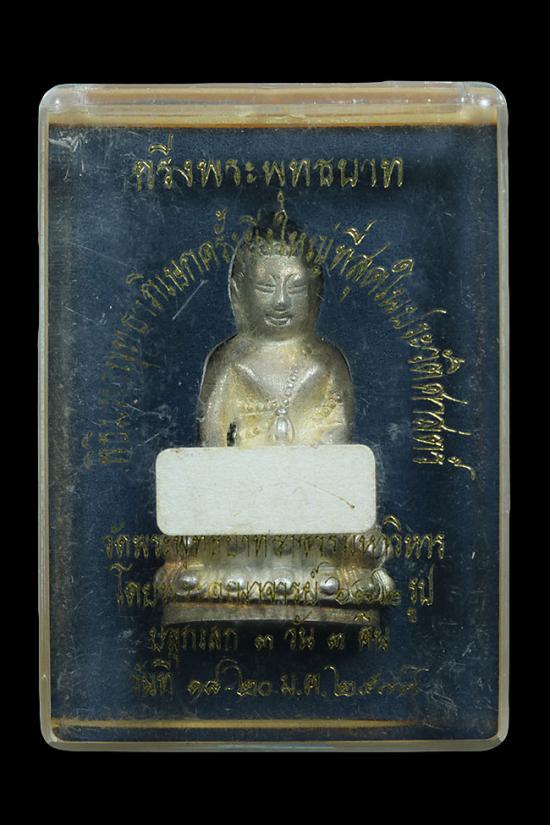 กริ่งพระพุทธบาท
พิธีมหาพุทธาภิเษกครั้งยิ่งใหญ่ที่สุดในประวัติศาสตร์
วัดพระพุทธบาทราชวรมหาวิหาร
โดยพระคณาจารย์ รูป
ปลุกเสก ๓ วัน ๓ คืน
วันที่ ๑๘-๒๐ ม.ค. ๒๕๓๗